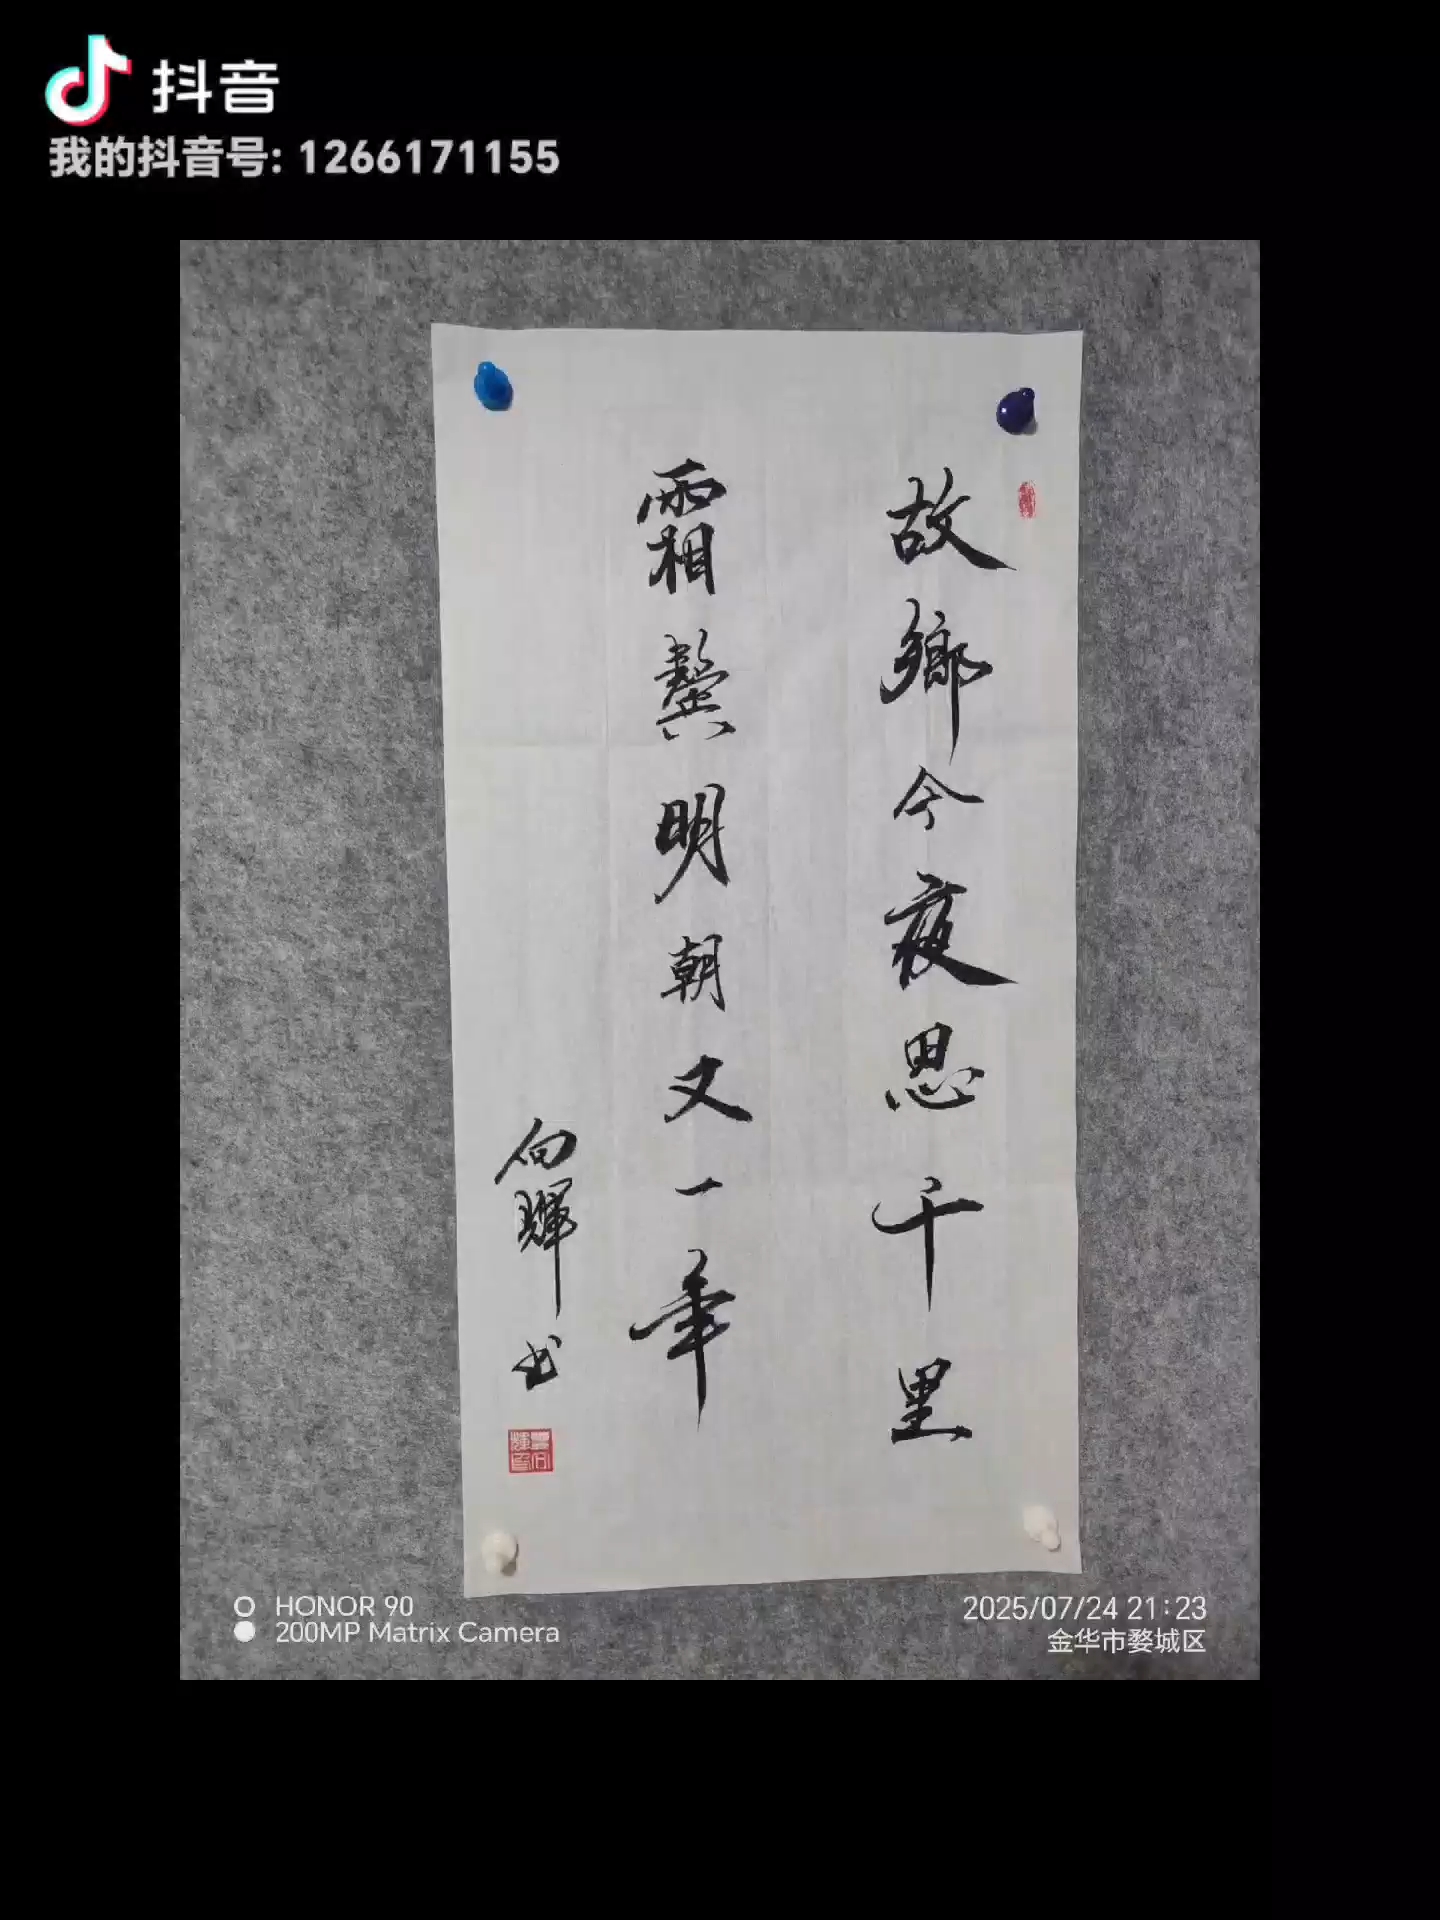 抖音
我的抖音号: 1266171155
故鄉今夜思千里
霜鬢明朝又一年
向輝书
HONOR 90
200MP Matrix Camera
2025/07/24 21:23
金华市婺城区